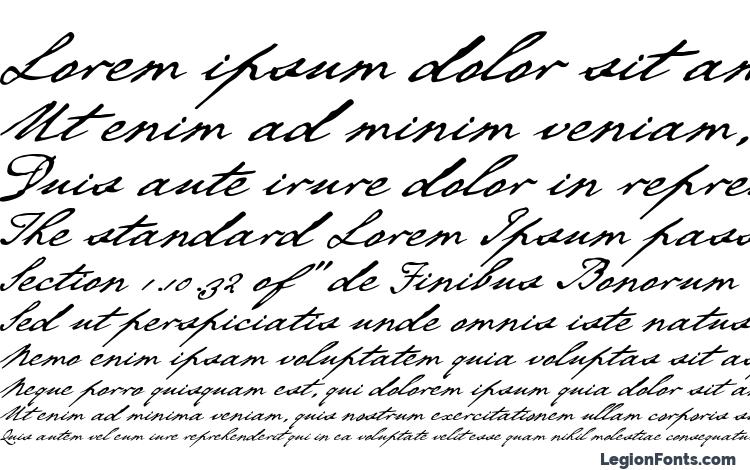 Lorem ipsum dolor sit am
Ut enim ad minim veniam,
Duis aute irure dolor in repre
The standard Lorem Ipsum pass
Section 1.10.32 of "de Finibus Bonorum
Sed ut perspiciatis unde omnis iste natus
Nemo enim ipsam voluptatem quia voluptas sit as
Neque porro quisquam est, qui dolorem ipsum quia dolor sit a
Ut enim ad minima veniam, quis nostrum exercitationem ullam corporis su
Quis autem vel eum iure reprehenderit qui in ea voluptate velit esse quam nihil molestiae consequatur
LegionFonts.com